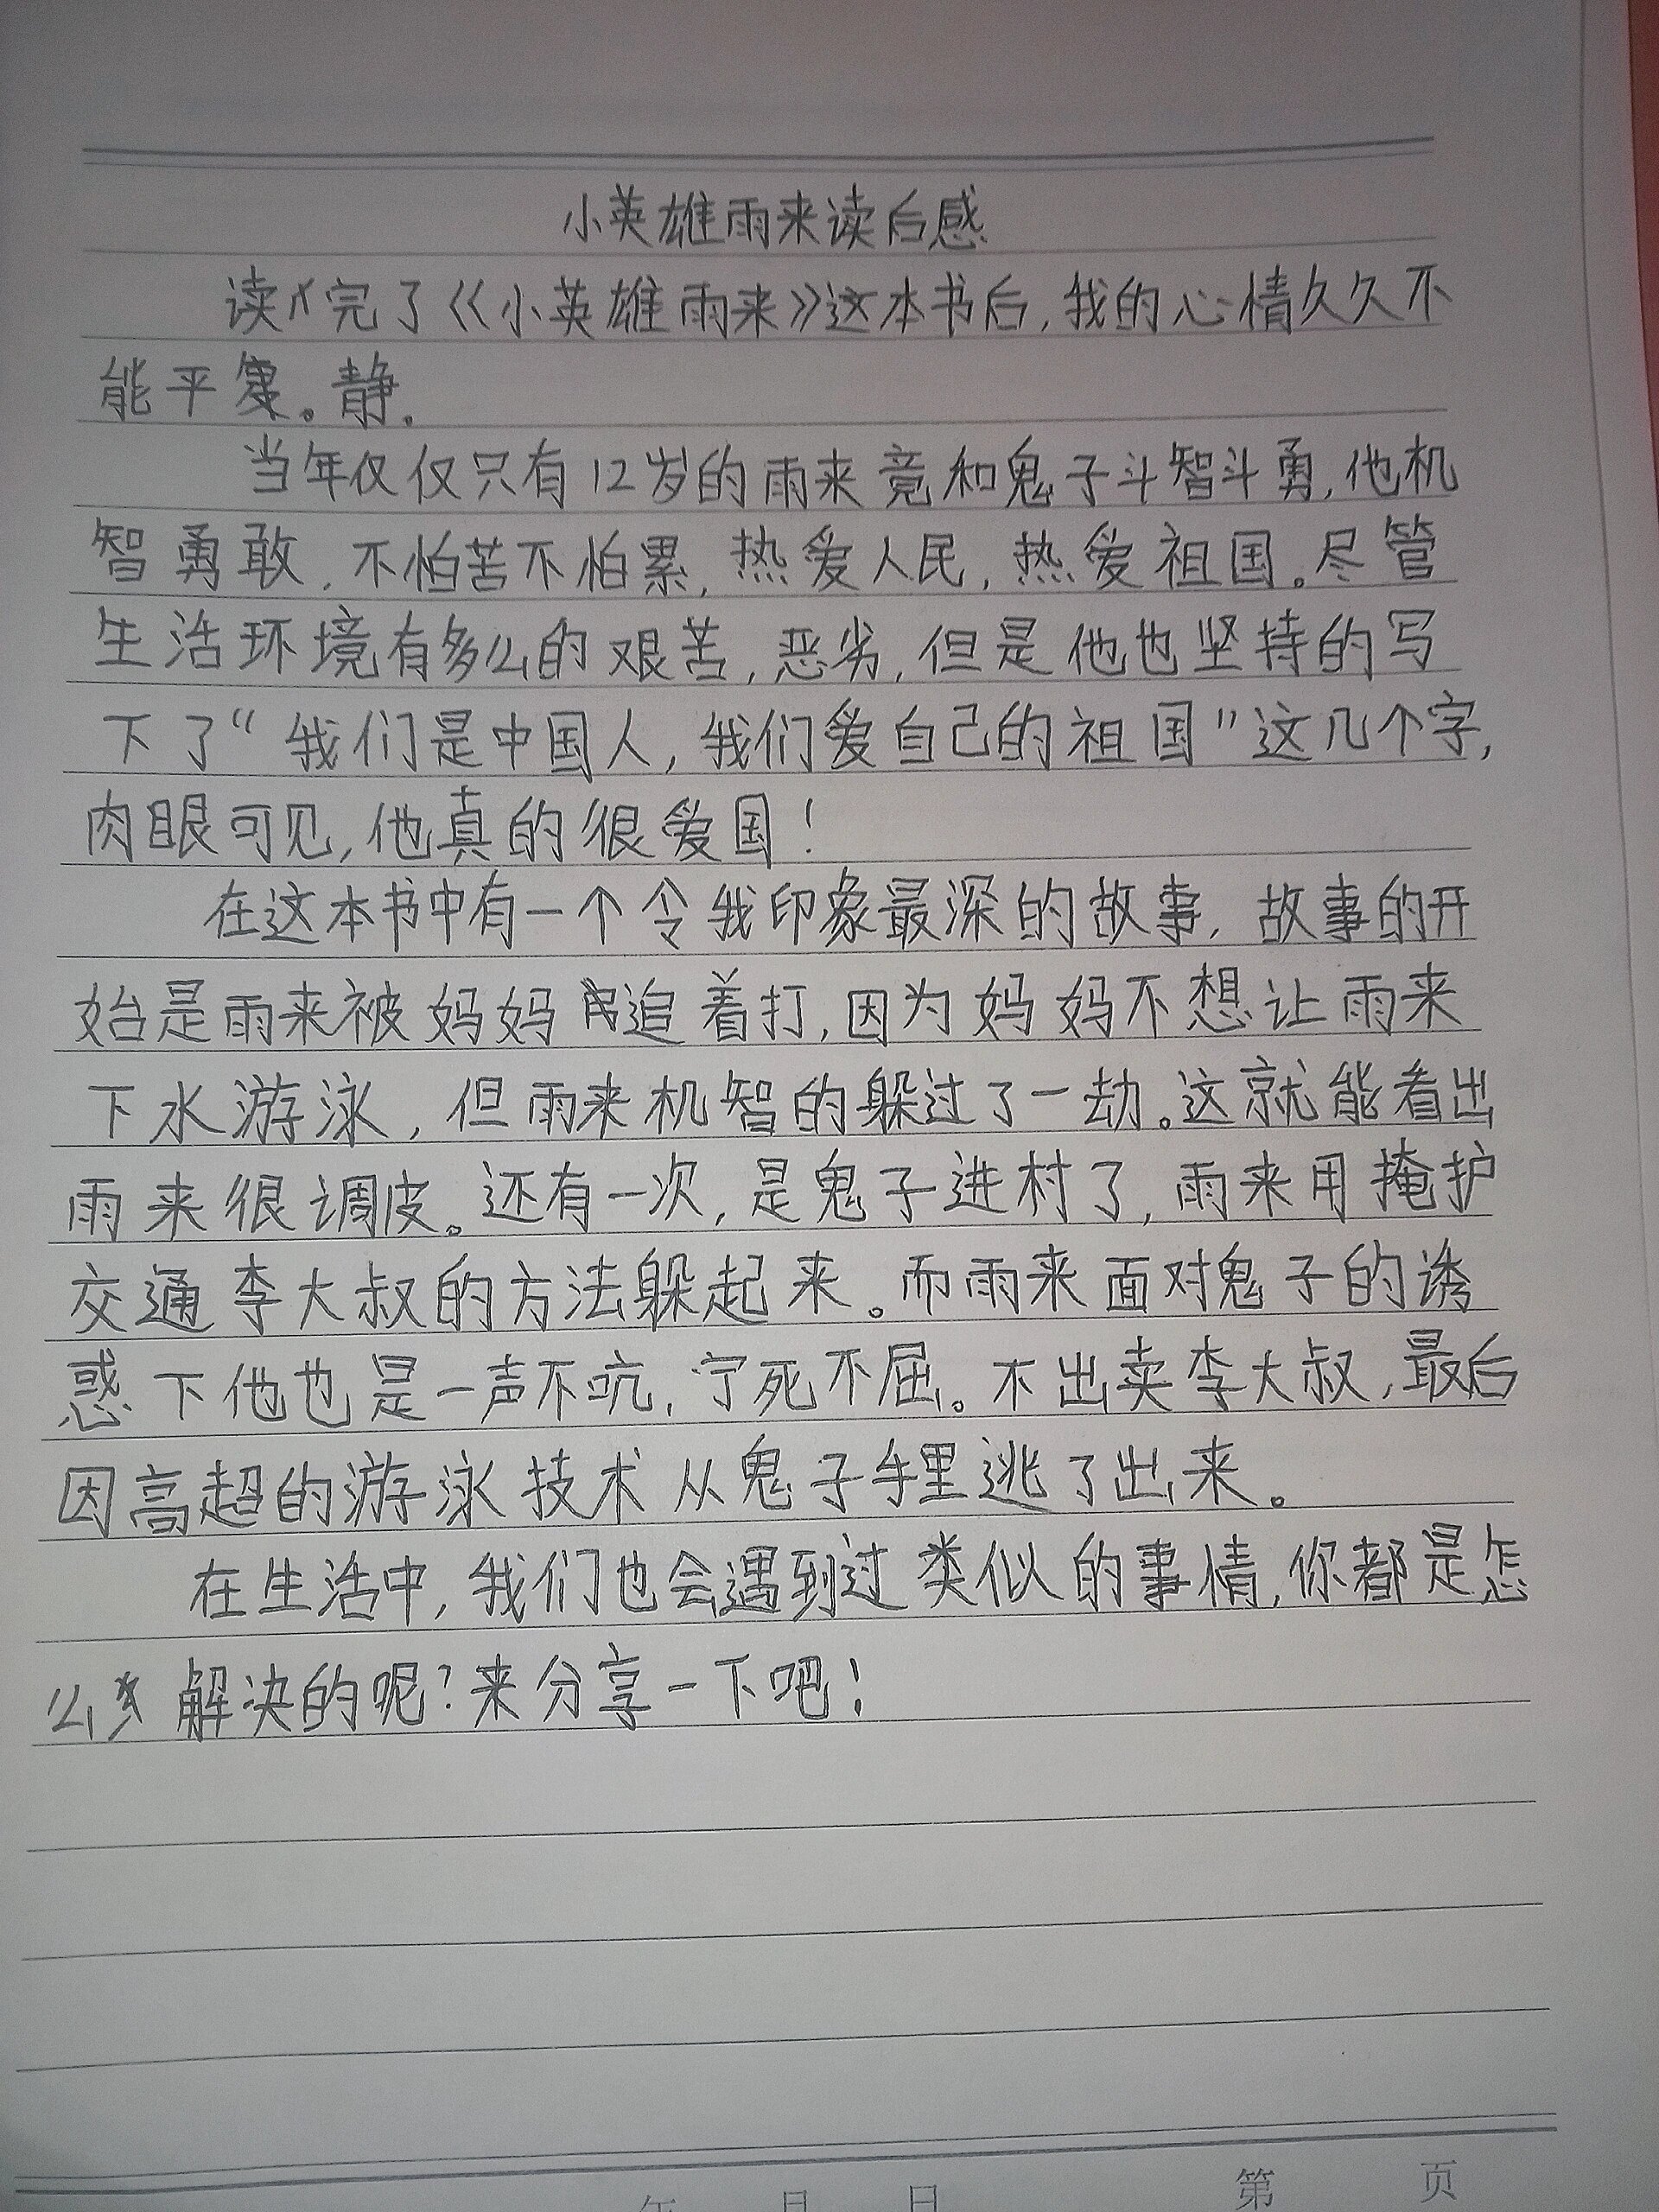 小英雄雨来读后感
读完了《小英雄雨来》这本书后,我的心情久久不
能平复。静。
当年仅仅只有12岁的雨来竟和鬼子斗智斗勇,他机
智勇敢,不怕苦不怕累,热爱人民,热爱祖国。尽管
生活环境有多么的艰苦,恶劣,但是他也坚持的写
下了“我们是中国人,我们爱自己的祖国”这几个字,
肉眼可见,他真的很爱国!
在这本书中有一个令我印象最深的故事,故事的开
始是雨来被妈妈追着打,因为妈妈不想让雨来
下水游泳,但雨来机智的躲过了一劫。这就能看出
雨来很调皮。还有一次,是鬼子进村了,雨来用掩护
交通李大叔的方法躲起来。而雨来面对鬼子的诱
惑下他也是一声不吭,宁死不屈。不出卖李大叔,最后
因高超的游泳技术从鬼子手里逃了出来。
在生活中,我们也会遇到过类似的事情,你都是怎
么解决的呢?来分享一下吧!
年 月 日 第 页